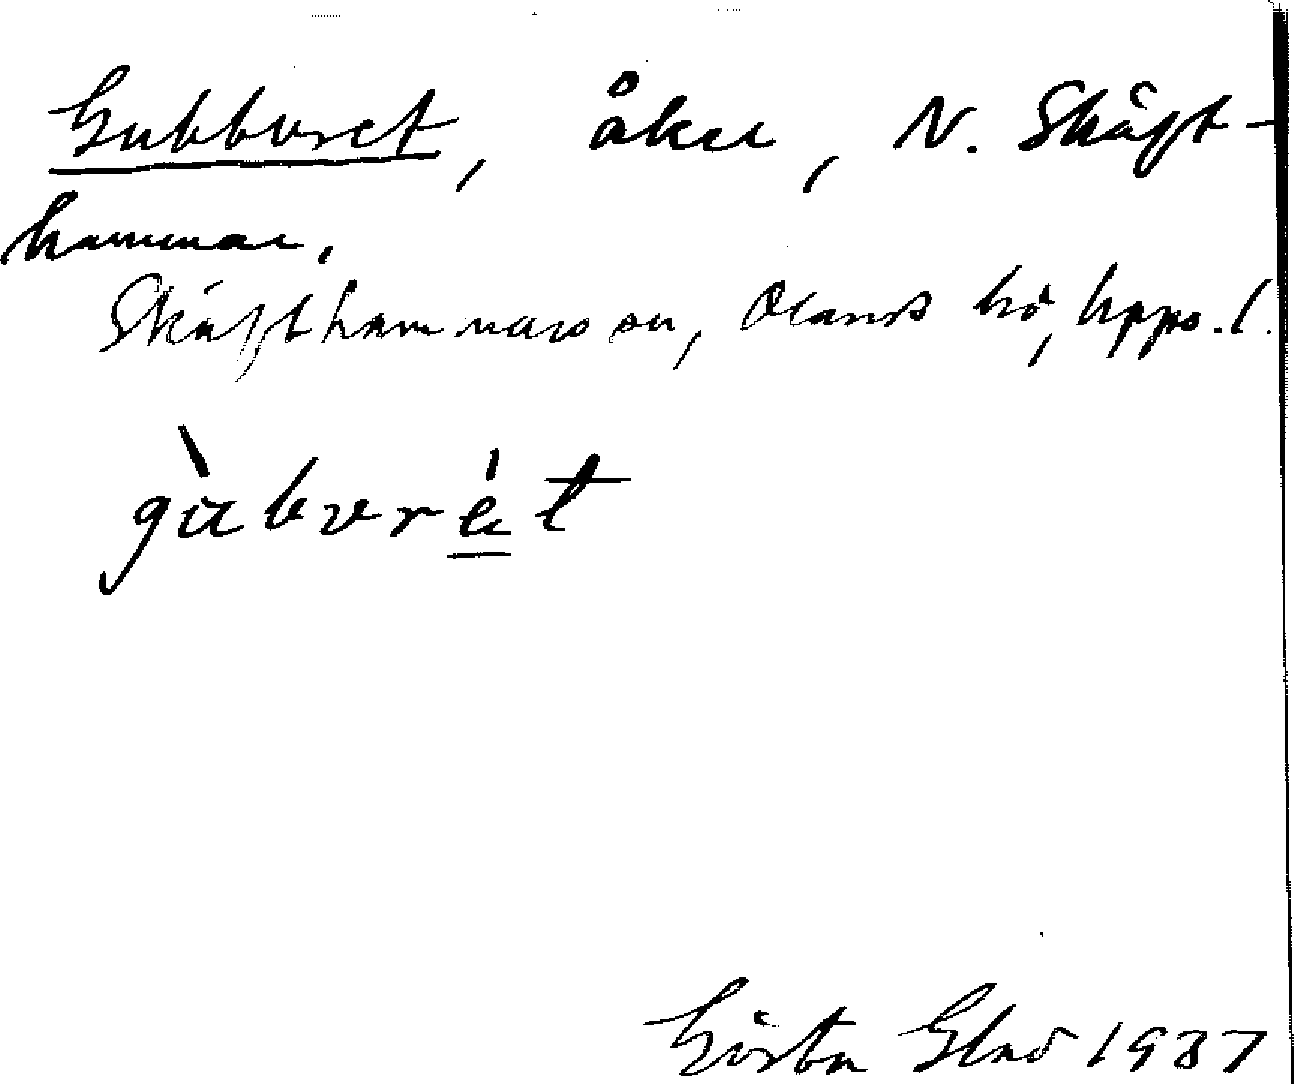 Gubbvret, åker, N. Skäft-
hammar,
Skäfthammars sn, Olands hd, Upps. l.
gùbvrét
Gösta 1937